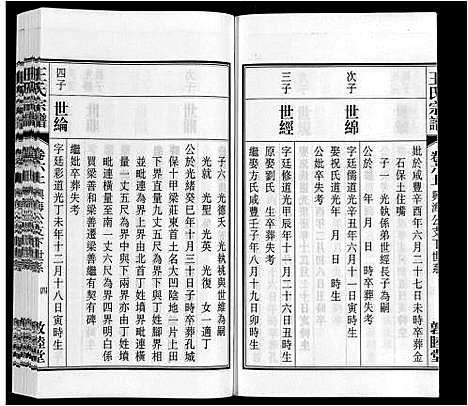 王氏宗譜
卷六
敦睦堂
妣於咸豐辛亥年六月二十七日未時卒葬金
石保土住嘴
子一 光執係弟世經長子為嗣
次子
世綿
字廷儒道光辛丑年六月十一日寅時生
公於 年 月 日時卒葬失考
娶祝氏道光 年 月 日 時生
公妣卒葬失考
三子
世經
字廷修道光甲辰年十一月二十六日丑時生
原娶劉氏 生卒葬失考
繼娶方氏咸豐壬子年八月十九日卯時生
子六 光德夭 光執桃與世維為嗣
光就 光聖 光英 光復 女一適丁
公於光緒癸巳年十月三十日子時卒葬孔城
保十甲梁莊東首土名大凹陰地一片上田
下界直量九丈五尺為界下與丁姓墳界毗
連橫量八丈五尺為界由北首丁姓墳界直量
一丈五尺為界中與下兩界亦由丁姓墳
界毗連橫量至南一丈六尺為界四界明白係
買梁善善還梁善繼有契有碑
四子
世綸
字廷彩道光丁未年十二月十八日寅時生
公妣卒葬失考
王氏宗譜
卷六
四
敦睦堂